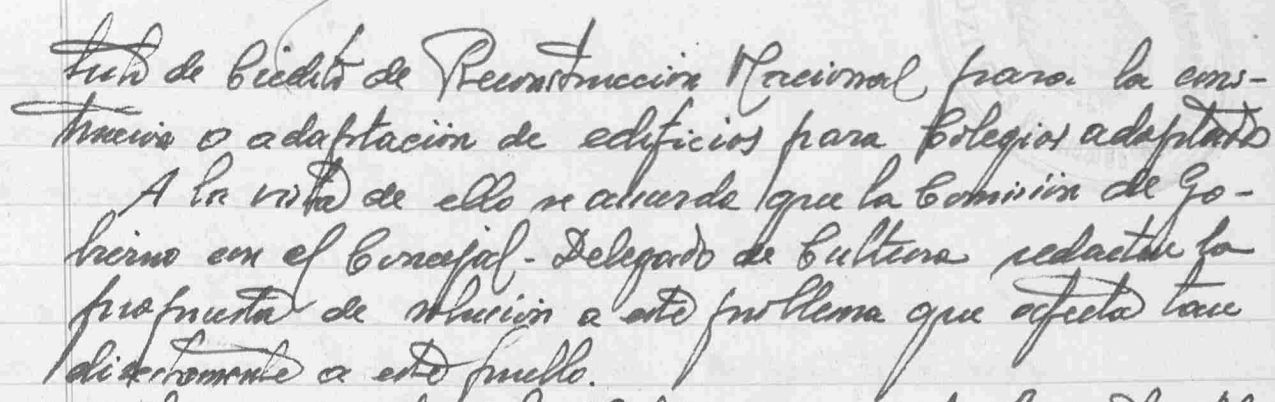 tuto de Crédito de Reconstrucción Nacional para la cons-
trucción o adaptación de edificios para Colegios adaptados
A la vista de ello se acuerda que la Comisión de Go-
bierno con el Concejal-Delegado de Cultura redacten la
propuesta de solución a este problema que afecta tan
directamente a este pueblo.